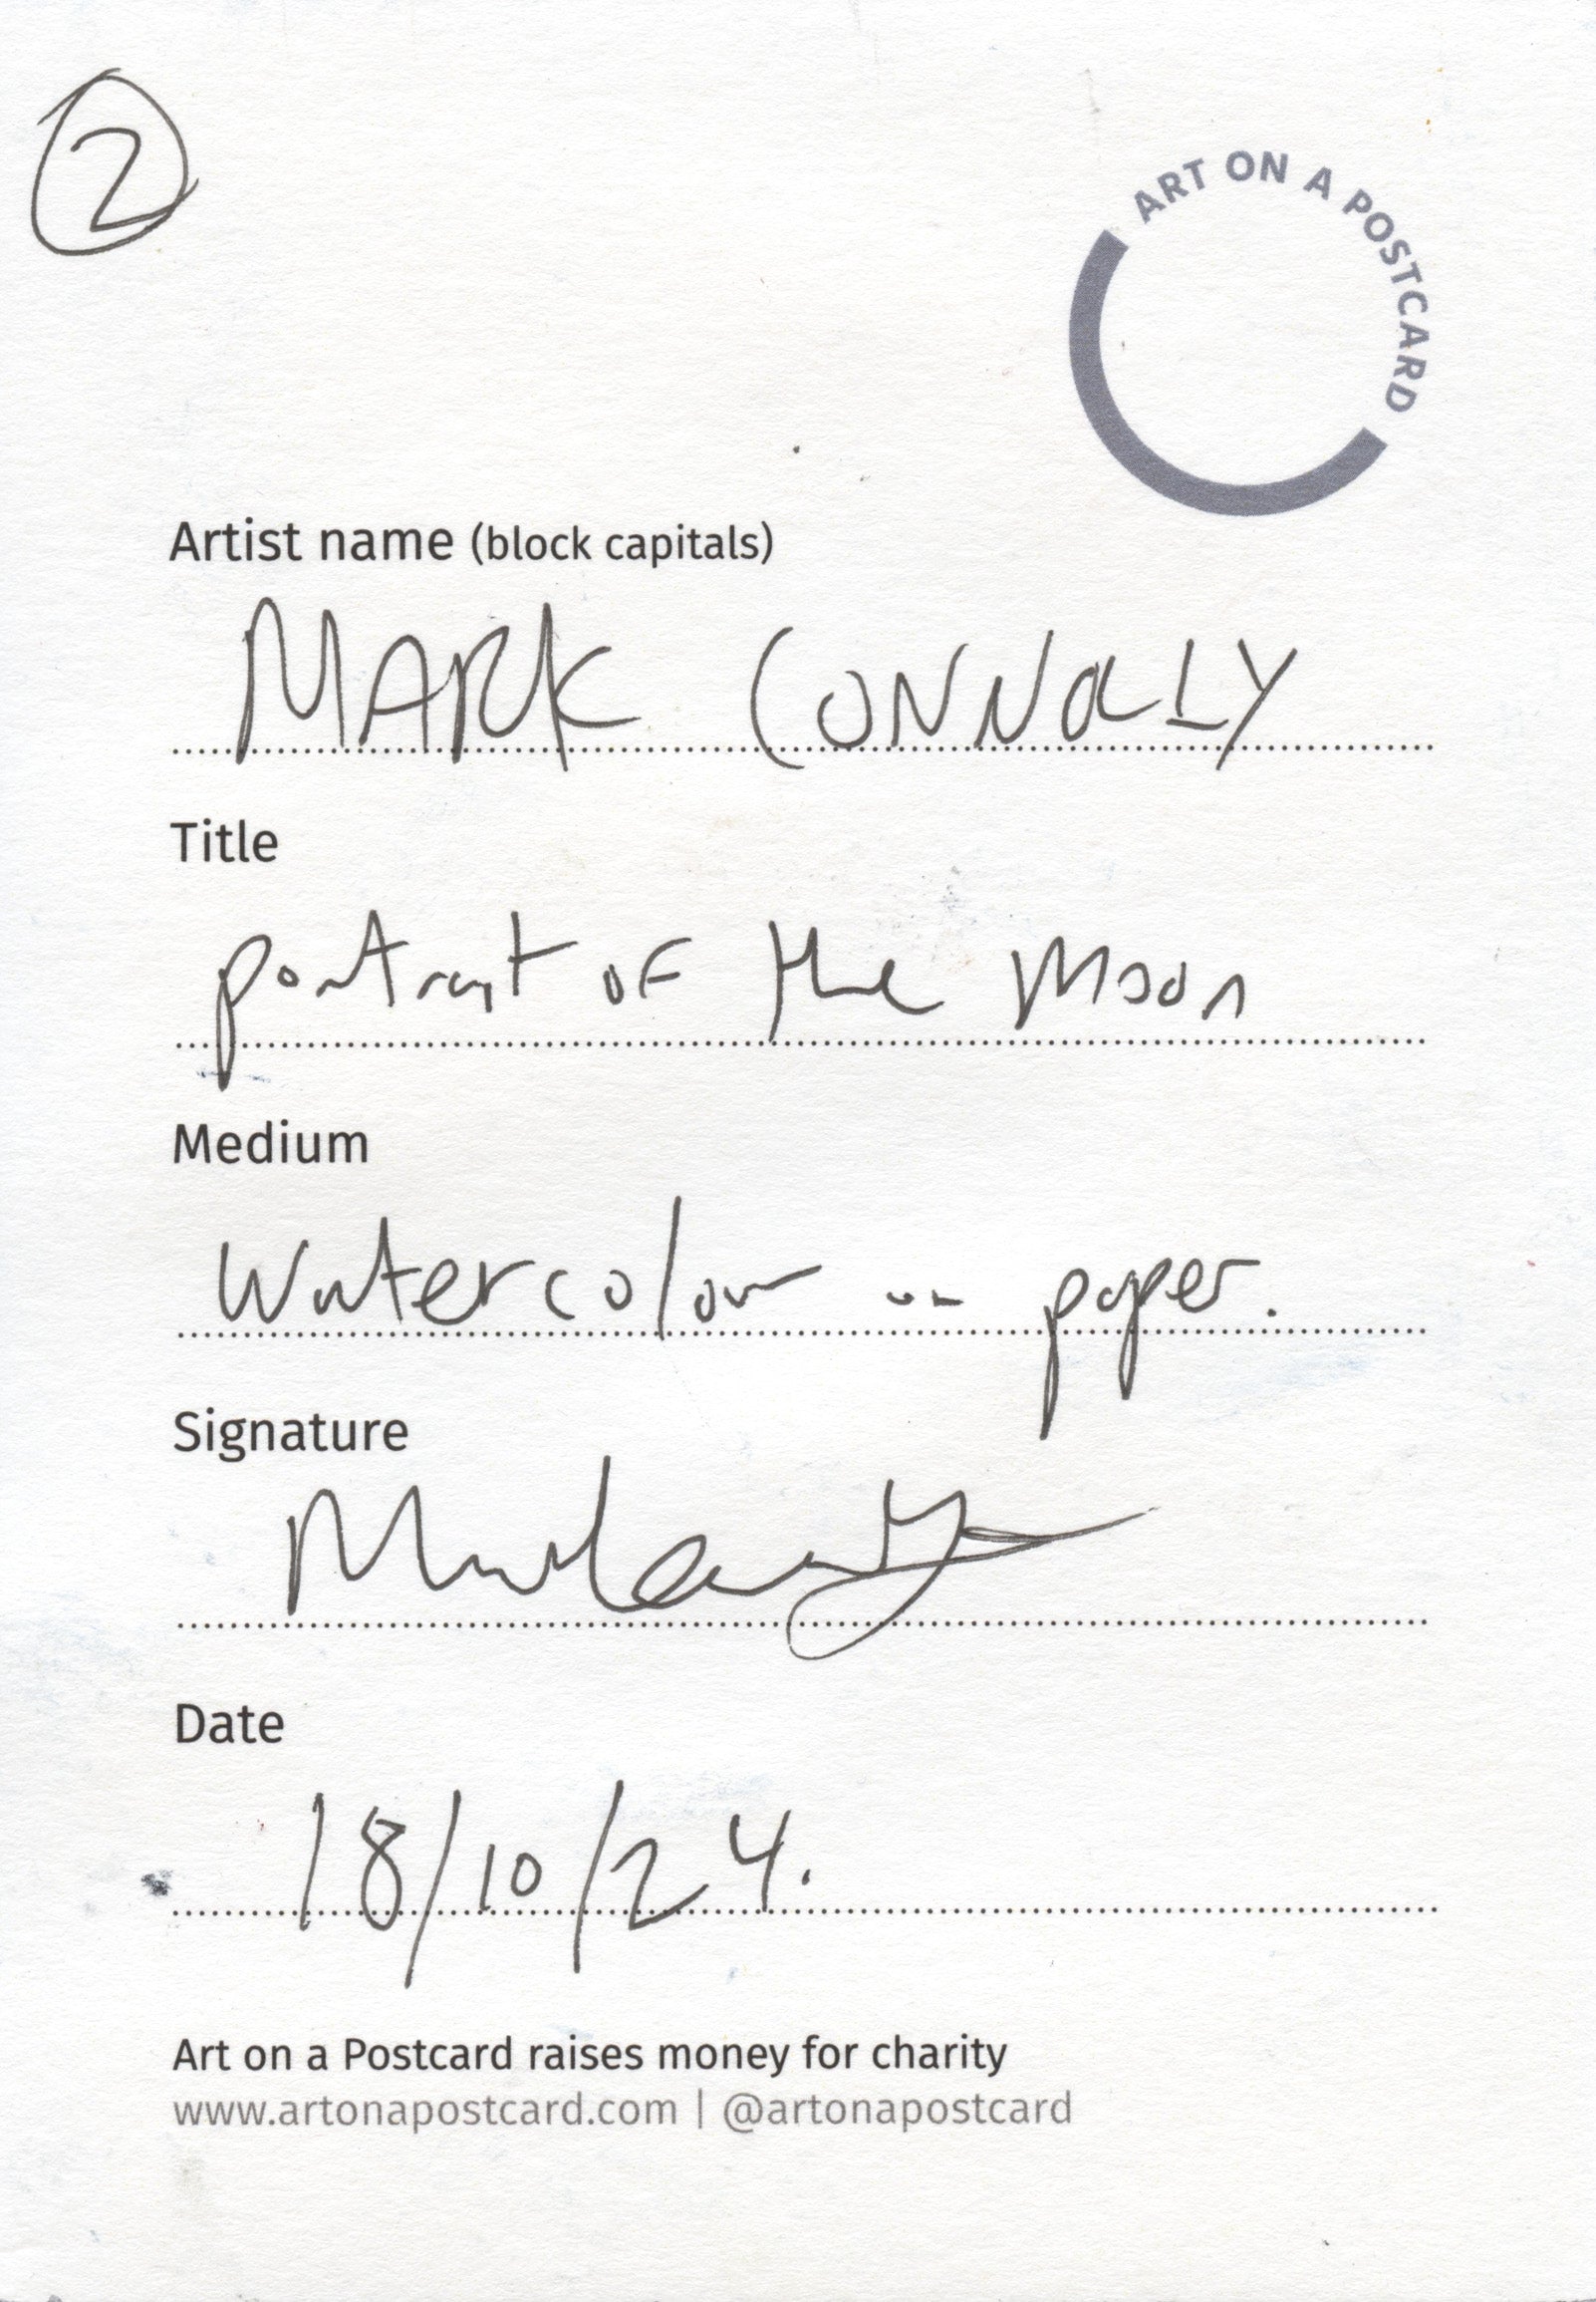 2
ART ON A POSTCARD
Artist name (block capitals)
MARK CONNOLLY
Title
portrait of the Moon
Medium
Watercolour on paper.
Signature
Date
18/10/24.
Art on a Postcard raises money for charity
www.artonapostcard.com | @artonapostcard